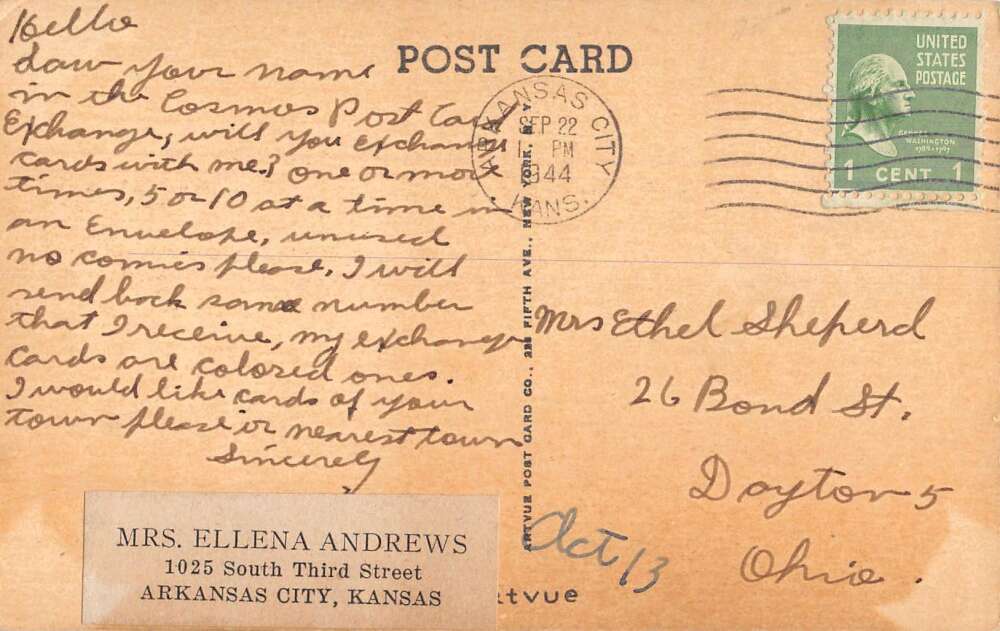 Hello
saw your name
in the Cosmos Post Card
Exchange, will you exchange
cards with me? one or more
times, 5 or 10 at a time in
an Envelope, unused
no comics please. I will
send back same number
that I receive, my exchange
cards are colored ones.
I would like cards of your
town please or nearest town
Sincerely
MRS. ELLENA ANDREWS
1025 South Third Street
ARKANSAS CITY, KANSAS
POST CARD
ARKANSAS CITY
SEP 22
PM
1944
KANS.
UNITED
STATES
POSTAGE
GEORGE
WASHINGTON
1789-1797
1 CENT 1
ARTVUE POST CARD CO., 225 FIFTH AVE., NEW YORK, N.Y.
Mrs Ethel Sheperd
26 Bond St.
Dayton 5
Ohio.
Oct 13
rtvue